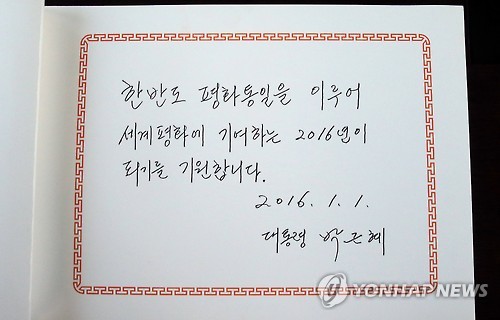 한반도 평화통일을 이루어
세계평화에 기여하는 2016년이
되기를 기원합니다.
2016. 1. 1.
대통령 박근혜
YONHAP NEWS